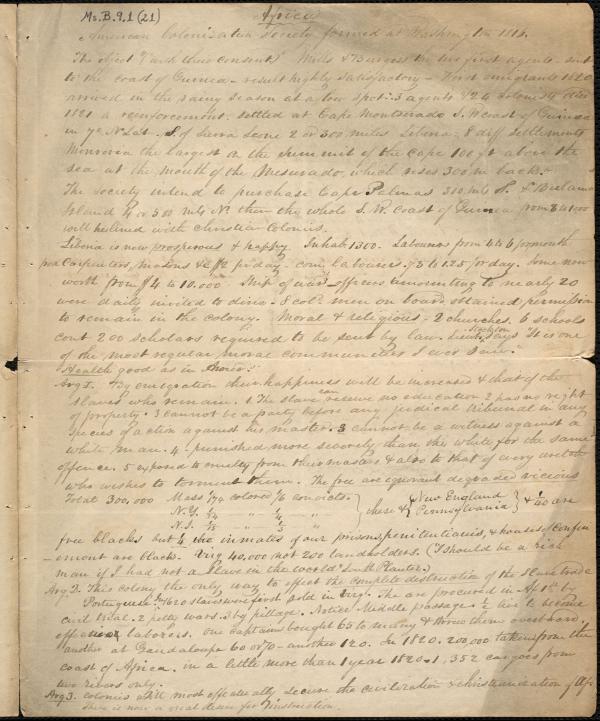 Ms. B. 9.1 (21)
Africa
American Colonization Society formed at Washington 1816.
The object "(with their consent)" Mills & Burgess the two first agents - sent
to the coast of Guinea - result highly satisfactory - First emigrants 1820
arrived in the rainy season at a low spot: 3 agents & 24 colonists died
1821 a reinforcement. settled at Cape Montserado S. W coast of Guinea
in 7° N Lat - S. of Sierra Leone 2 or 300 miles. Liberia - 8 diff settlements
Monrovia the largest on the summit of the Cape 100 ft above the
sea at the mouth of the Mesurado, which rises 300 m back.
The Society intend to purchase Cape Palmas 300 mls S. &
Island 4 or 500 mls N. then the whole S. W. Coast of Guinea from
will be lined with Christian Colonies.
Liberia is now prosperous & happy. Inhab. 1300. Labourers from 4 to 6 pr month
Carpenters, masons & $2 pr day - com labourers .75 to 1.25 pr day. Some now
worth from $4 to 10.000 Ship of war - officers amounting to nearly 20
were daily invited to dine - 8 col. men on board obtained permission
to remain in the colony. Moral & religious - 2 churches. 6 schools
cont 200 scholars required to be sent by law. Lieut. Stockton says "It is one
of the most regular, moral communities I ever saw."
Health good as in
Arg 1. By emigration their happiness will be increased & that of the
slaves who remain. 1. The slave can receive no education 2 has no right
of property. 3 cannot be a party before any judical tribunal in any
species of action against his master. 3 cannot be a witness against a
white man. 4 - punished more severely than the white for the same
offence. 5 exposed to cruelty from their masters & also to that of every wretch
who wishes to torment them. The free are ignorant degraded vicious
Total 300,000 Mass 1/74 colored 1/6 convicts.
N. Y. 1/35 " " 1/4 "
N. J. 1/13 " " 1/3 "
these & New England Pennsylvania & 1/40 are
free blacks but 1/4 the inmates of our prisons, penitentiaries, & houses of confine
-ment are black. Virg 40,000, not 200 landholders. (I should be a rich
man if I had not a Slave in the world" South Planter.)
Arg 2. This colony the only way to effect the complete destruction of the slave trade
Portuguese In 1620 slaves were first sold in Virg. The are procured in Af 1st by
civil trial. 2 petty wars. 3 by pillage. Notice Middle passage - to become
efficient laborers. One captain bought 65 to many & threw them overboard.
another at Guadaloupe 60 or 70 - another 120. In 1820. 200,000 taken from the
coast of Africa. in a little more than 1 year 1820-1, 352 cargoes from
two rivers only.
Arg 3. colonies will most effectually secure the civilization & christianization of Af.
There is now a great desire for instruction.